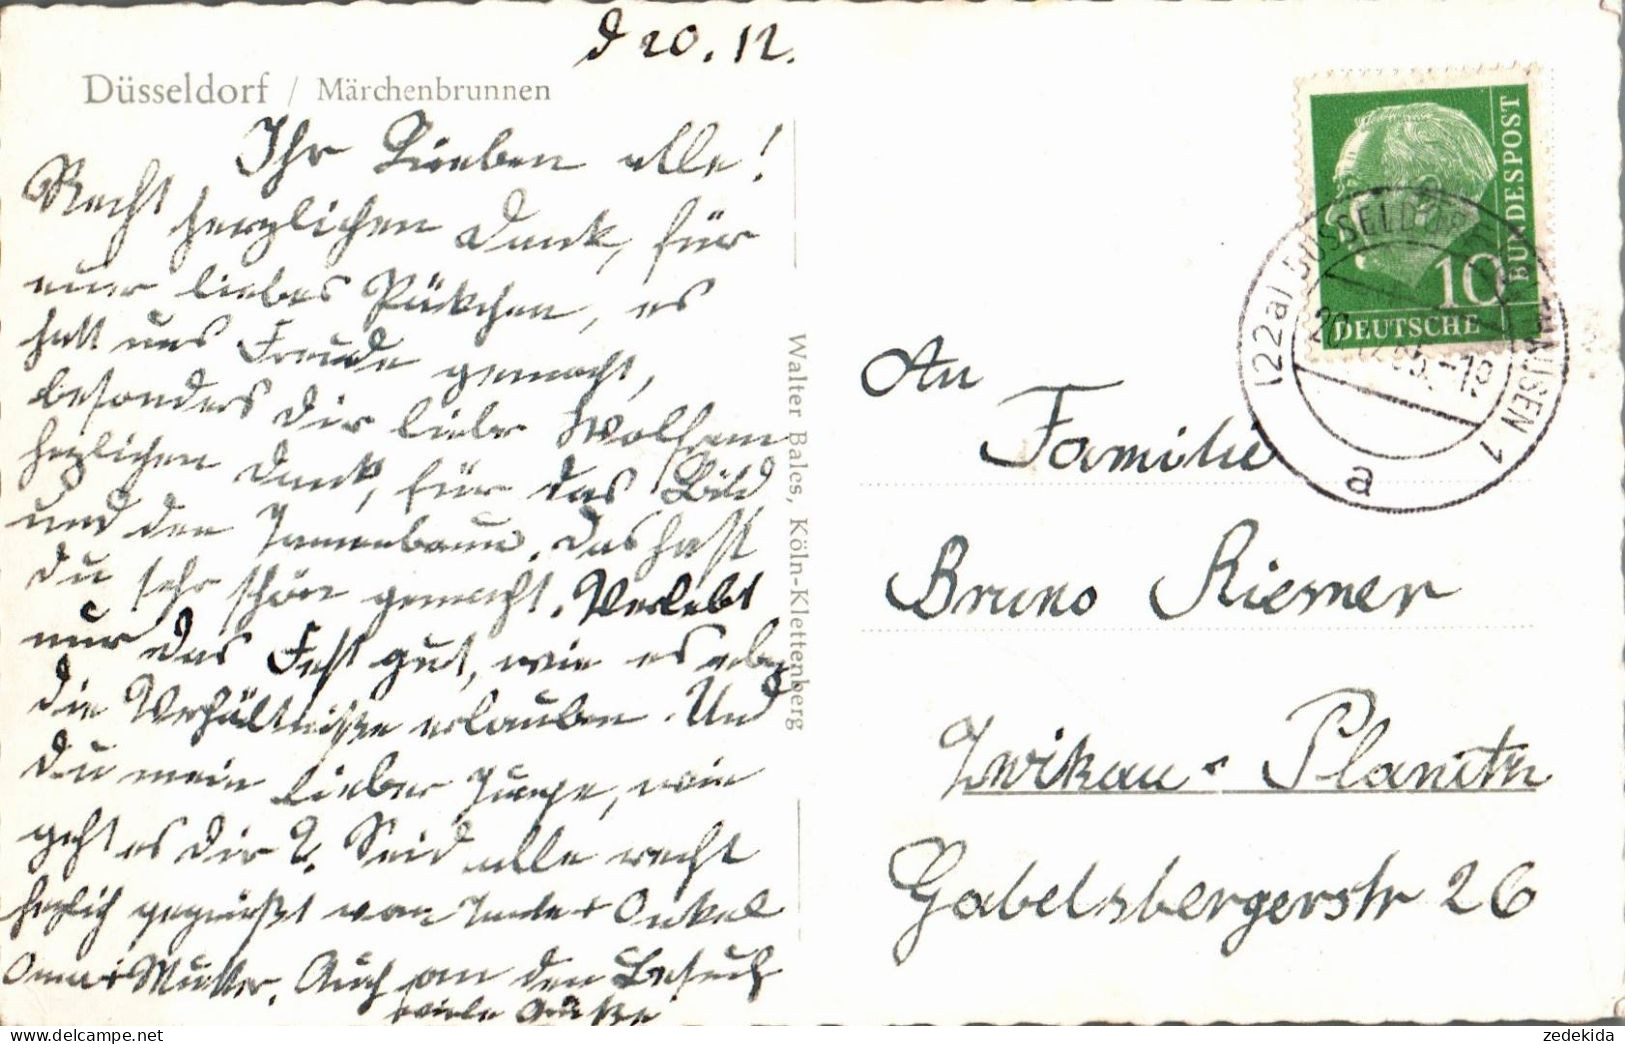 d 20. 12.
Düsseldorf / Märchenbrunnen
Ihr Lieben alle!
Recht herzlichen Dank, für
euer liebes Päckchen, es
hatt uns Freude gemacht,
besonders dir lieber Wolfram
herzlichen Dank, für das Bild
und den Tannenbaum. Das hast
du sehr schön gemacht. Verlebt
nur das Fest gut, wie es eben
die Verhältniße erlauben. Und
du mein lieber Junge, wie
geht es dir?. Seid alle recht
herzlich gegrüßt von Tante + Onkel
Oma + Mutter. Auch an den Besuch
viele Grüße
Walter Bales, Köln-Klettenberg
DEUTSCHE
BUNDESPOST
10
(22a) DÜSSELDORF
1
a
An
Familie
Bruno Riemer
Zwikau - Planitz
Gabelsbergerstr 26
zedekida